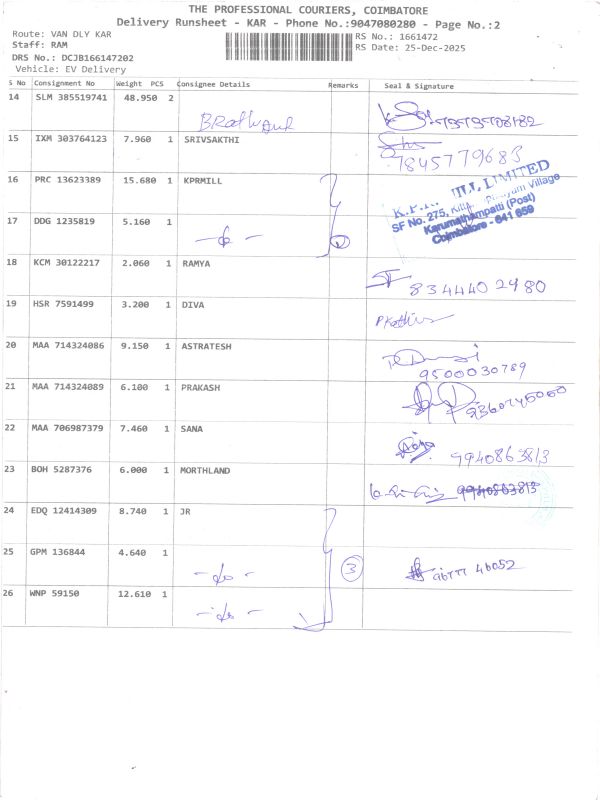 THE PROFESSIONAL COURIERS, COIMBATORE
Delivery Runsheet - KAR - Phone No.:9047080280 - Page No.:2
Route: VAN DLY KAR
Staff: RAM
DRS No.: DCJB166147202
Vehicle: EV Delivery
RS No.: 1661472
RS Date: 25-Dec-2025
S No Consignment No Weight PCS Consignee Details Remarks Seal & Signature
14 SLM 385519741 48.950 2
7979708182
15 IXM 303764123 7.960 1 SRIVSAKTHI
7845779683
16 PRC 13623389 15.680 1 KPRMILL
MILL LIMITED
SF No. 275, Village
Karumathampatti (Post)
Coimbatore - 641 659
17 DDG 1235819 5.160 1
- do -
18 KCM 30122217 2.060 1 RAMYA
8344402980
19 HSR 7591499 3.200 1 DIVA
20 MAA 714324086 9.150 1 ASTRATESH
9500030789
21 MAA 714324089 6.100 1 PRAKASH
9360745060
22 MAA 706987379 7.460 1 SANA
9940863813
23 BOH 5287376 6.000 1 MORTHLAND
9940863813
24 EDQ 12414309 8.740 1 JR
25 GPM 136844 4.640 1
- do - 3 96777 46052
26 WNP 59150 12.610 1
- do -